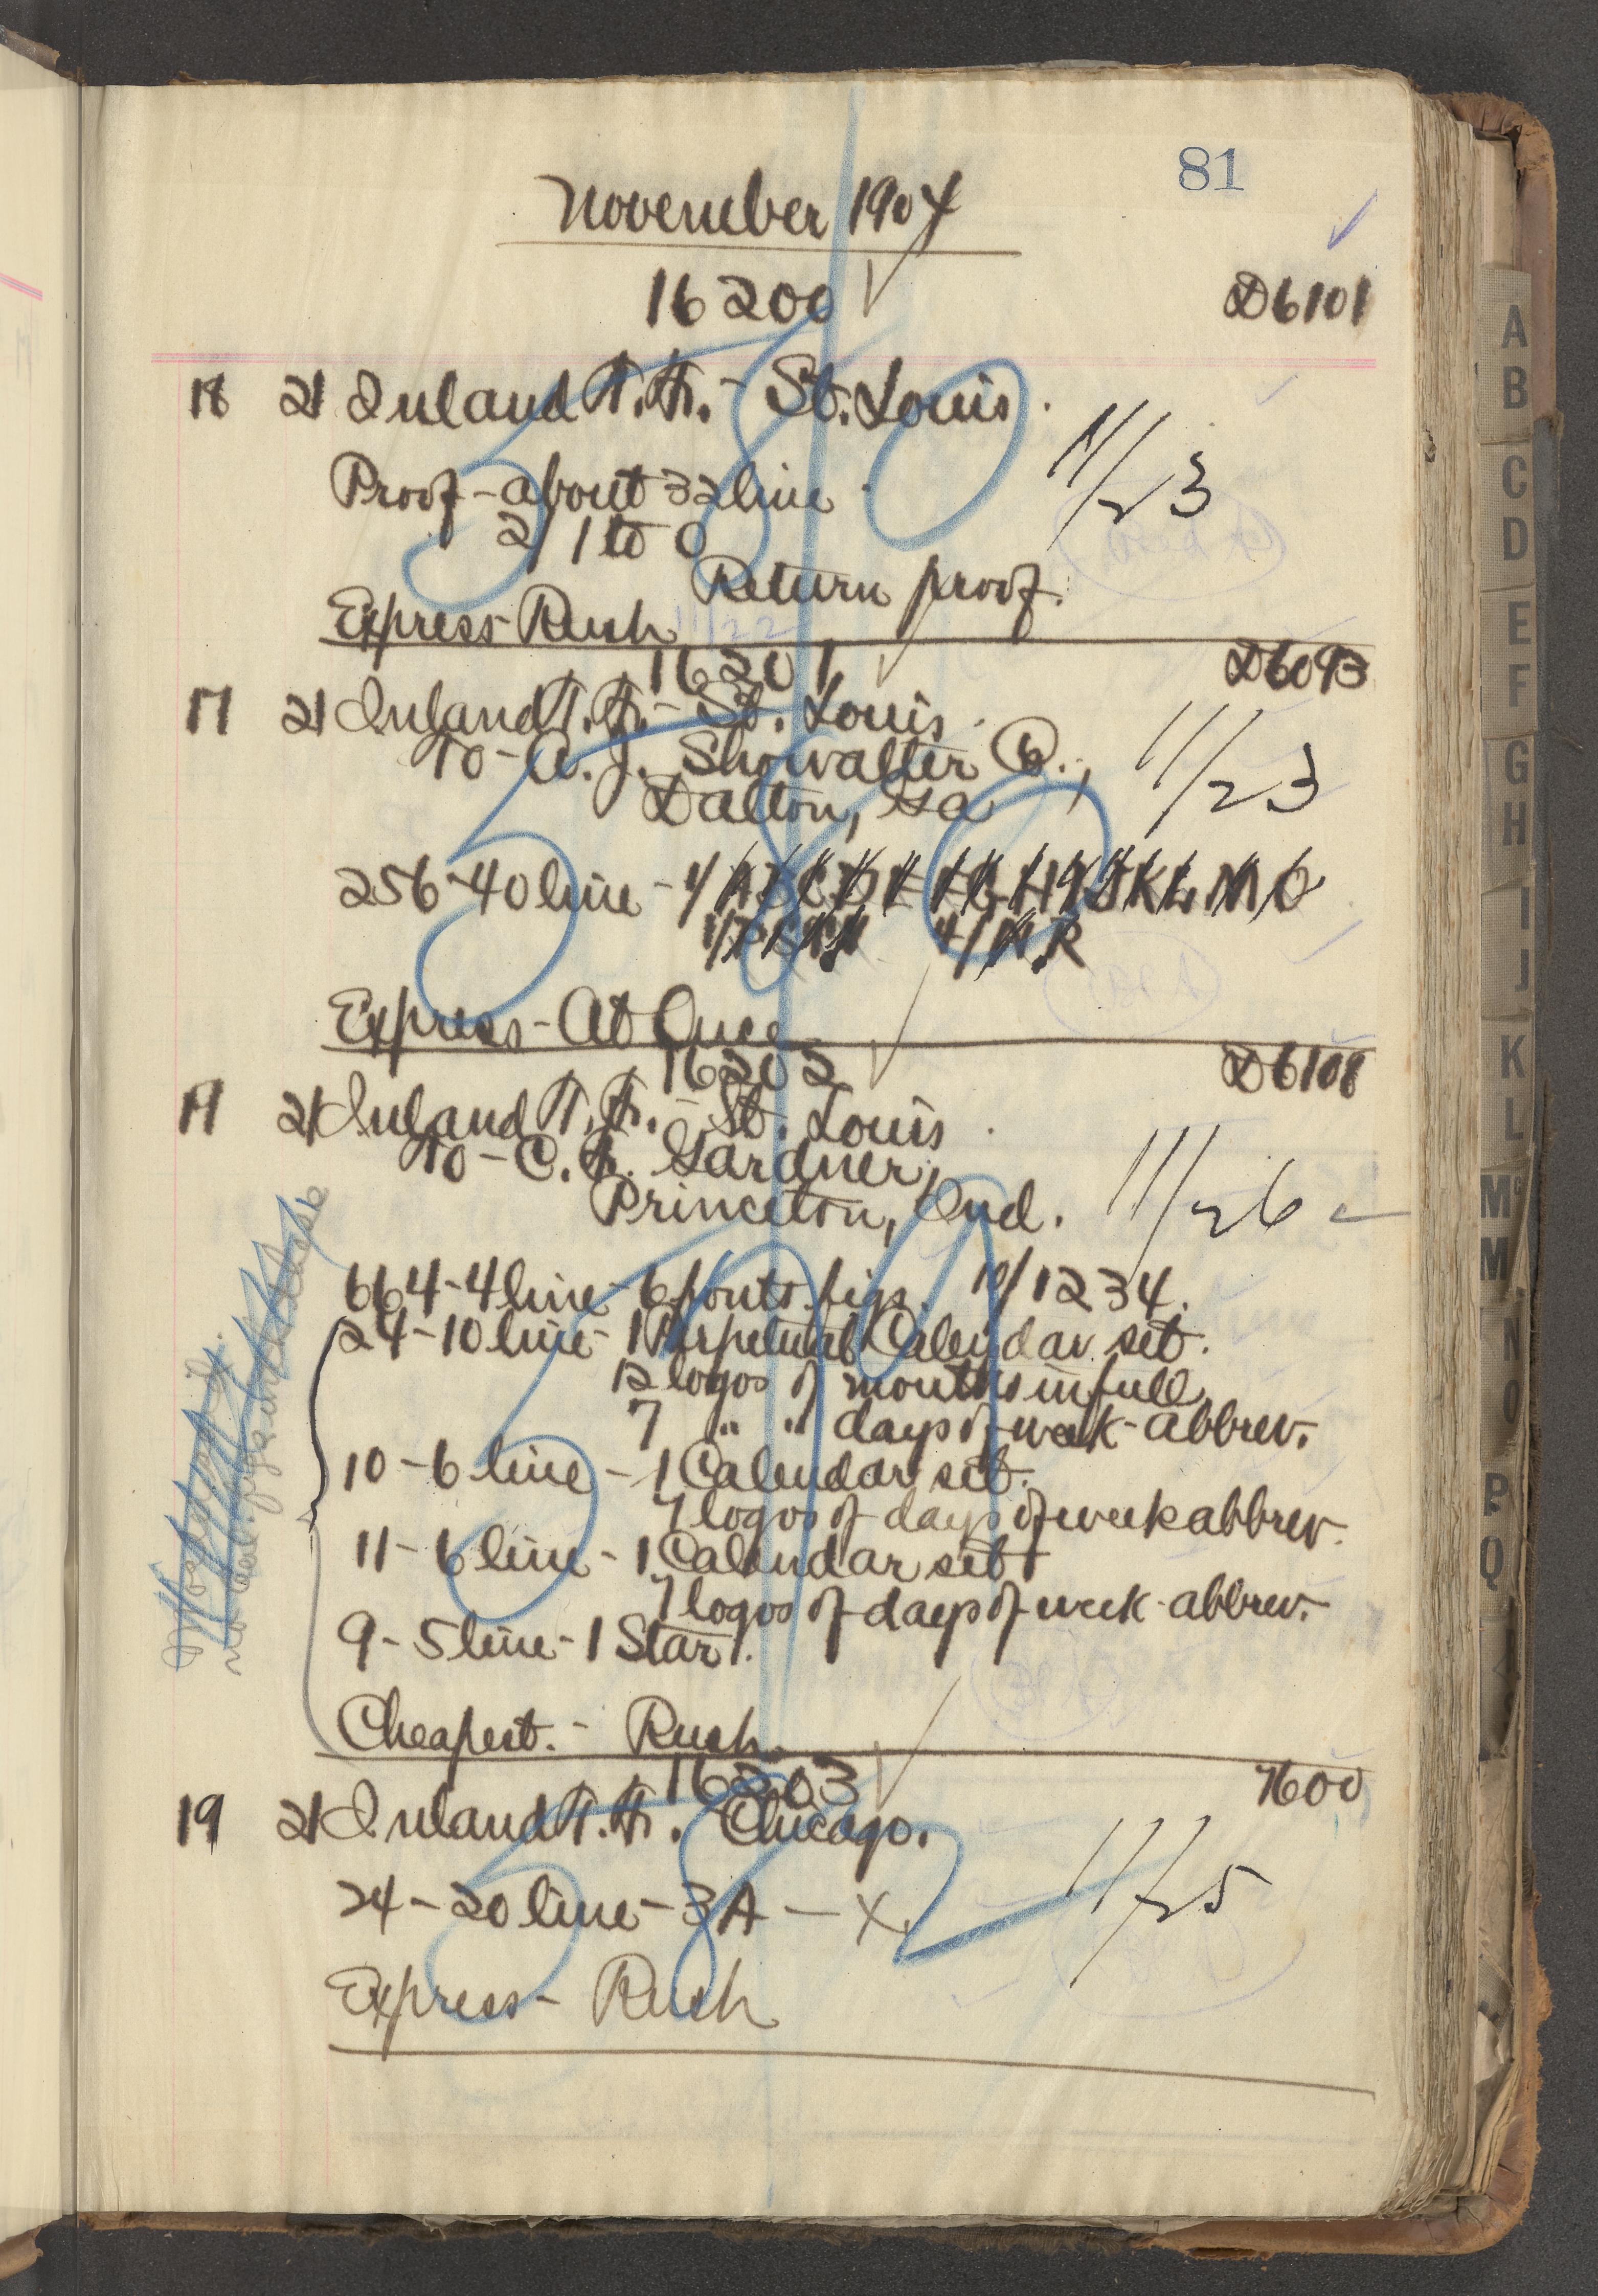 81
November 1904
16200 D6101
18 21 Inland T. F. - St. Louis.
Proof - about 32 line 11/23
2/1 to 0
Return proof.
Express Rush 11/22
16201 D6093
17 21 Inland T. F. - St. Louis.
To - A. J. Showalter Co.,
Dalton, Ga 11/23
256-40 line - 4/ A B C D E F G H I J K L M O
4/ N R
Express - At Once
16202
21 Inland T. F. - St. Louis.
To - C. F. Gardner,
Princeton, Ind. 11/26
664-4 line - 6 fonts figs. 10/1 2 3 4.
24-10 line - 1 Perpetual Calendar set.
12 logos of months in full
7 " " days of week - abbrev.
10-6 line - 1 Calendar set.
7 logos of days of week abbrev.
11-6 line - 1 Calendar set
7 logos of days of week - abbrev.
9-5 line - 1 Star.
Cheapest. - Rush.
16203 7600
19 21 Inland T. F. Chicago.
24-20 line - 3A - X. 11/25
Express - Rush
580
580
582
A
B
C
D
E
F
G
H
I
J
K
L
Mc
M
N
O
P
Q